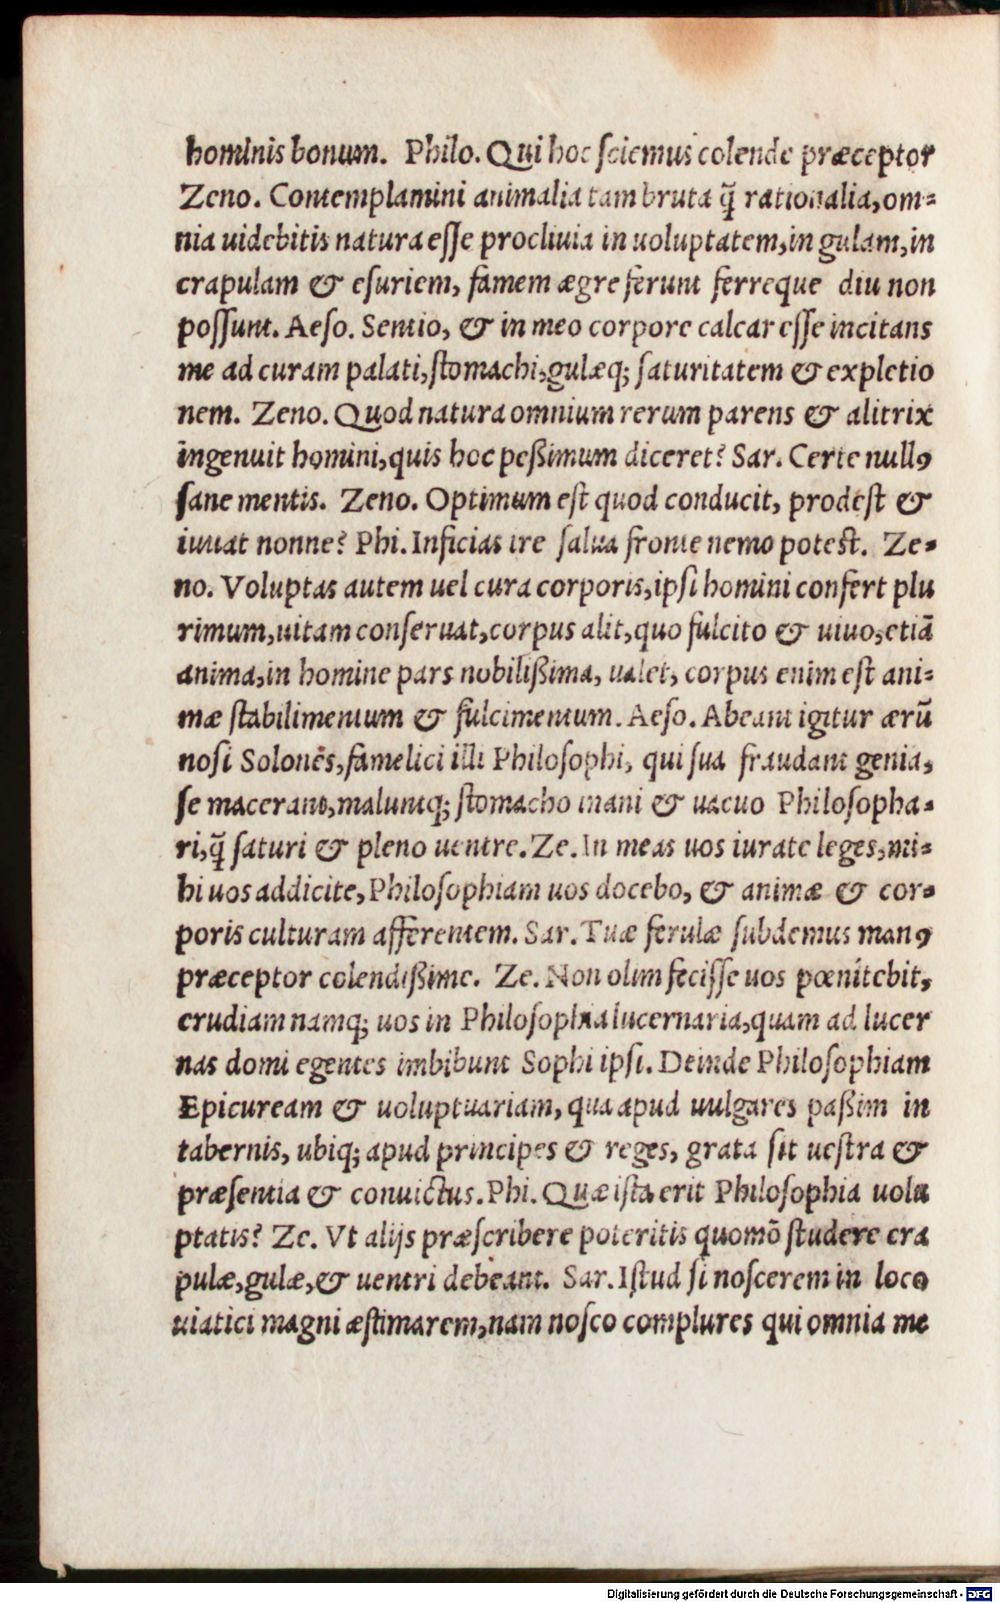 hominis bonum. Philo. Qui hoc ſciemus colende præceptor
Zeno. Contemplamini animalia tam bruta q̃ rationalia, om=
nia uidebitis natura eſſe procliuia in uoluptatem, in gulam, in
crapulam & eſuriem, famem ægre ferunt ferreque diu non
poſſunt. Aeſo. Sentio, & in meo corpore calcar eſſe incitans
me ad curam palati, ſtomachi, gulæq; ſaturitatem & expletio
nem. Zeno. Quod natura omnium rerum parens & alitrix
ingenuit homini, quis hoc peßimum diceret? Sar. Certe nullꝰ
ſane mentis. Zeno. Optimum eſt quod conducit, prodeſt &
iuuat nonne? Phi. Inficias ire ſalua fronte nemo poteſt. Ze=
no. Voluptas autem uel cura corporis, ipſi homini confert plu
rimum, uitam conſeruat, corpus alit, quo fulcito & uiuo, etiã
anima, in homine pars nobilißima, ualet, corpus enim eſt ani=
mæ ſtabilimentum & fulcimentum. Aeſo. Abeant igitur ærũ
noſi Solones, famelici illi Philoſophi, qui ſua fraudant genia,
ſe macerant, maluntq; ſtomacho inani & uacuo Philoſopha=
ri, q̃ ſaturi & pleno uentre. Ze. In meas uos iurate leges, mi=
hi uos addicite, Philoſophiam uos docebo, & animæ & cor=
poris culturam afferentem. Sar. Tuæ ferulæ ſubdemus manꝰ
præceptor colendißime. Ze. Non olim feciſſe uos pœnitebit,
erudiam namq; uos in Philoſophia lucernaria, quam ad lucer
nas domi egentes imbibunt Sophi ipſi. Deinde Philoſophiam
Epicuream & uoluptuariam, qua apud uulgares paßim in
tabernis, ubiq; apud principes & reges, grata ſit ueſtra &
præſentia & conuictus. Phi. Quæ iſta erit Philoſophia uolu
ptatis? Ze. Vt alijs præſcribere poteritis quomõ ſtudere cra
pulæ, gulæ, & uentri debeant. Sar. Iſtud ſi noſcerem in loco
uiatici magni æſtimarem, nam noſco complures qui omnia me
Digitalisierung gefördert durch die Deutsche Forschungsgemeinschaft - DFG